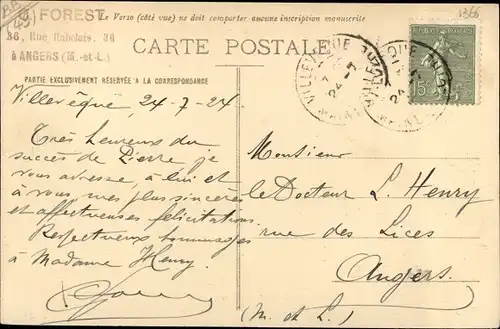 G. FOREST
36, Rue Rabelais, 36
à ANGERS (M.-et-L.)
Le Verso (côté vue) ne doit comporter aucune inscription manuscrite
1366
CARTE POSTALE
PARTIE EXCLUSIVEMENT RÉSERVÉE A LA CORRESPONDANCE
Villevêque 24-7-24.
Très heureux du
succès de Pierre je
vous adresse, à lui et
à vous mes plus sincères
et affectueuses félicitations.
Respectueux hommages
à Madame Henry.
Monsieur
le Docteur L. Henry
rue des Lices
Angers.
(M. et L.)
15c